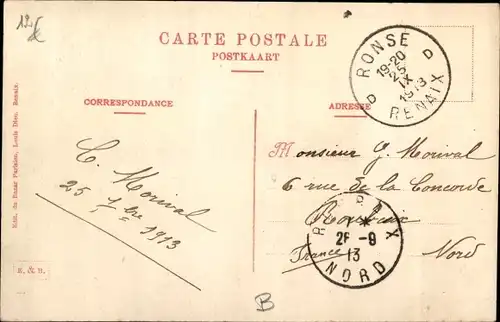 12€
CARTE POSTALE
POSTKAART
RONSE
D D
19-20
25
IX
1913
RENAIX
CORRESPONDANCE
ADRESSE
C. Morival
25 7bre 1913
Monsieur G. Morival
6 rue de la Concorde
Roubaix
France Nord
ROUBAIX
26-9
13
NORD
Edit. du Bazar Parisien, Louis Dieu, Renaix.
R. & B.
B